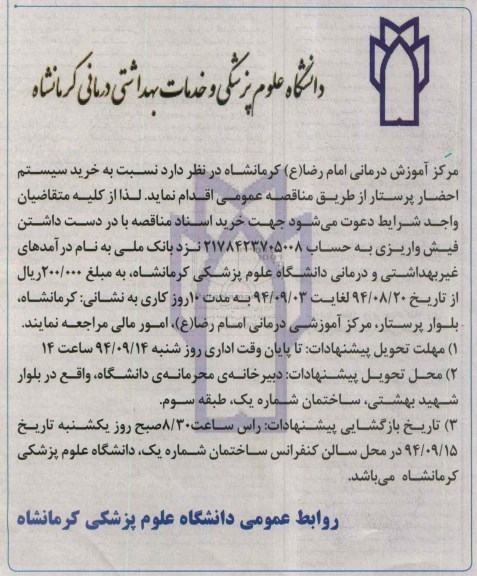 دانشگاه علوم پزشکی و خدمات بهداشتی درمانی کرمانشاه
مرکز آموزش درمانی امام رضا(ع) کرمانشاه در نظر دارد نسبت به خرید سیستم
احضار پرستار از طریق مناقصه عمومی اقدام نماید. لذا از کلیه متقاضیان
واجد شرایط دعوت می‌شود جهت خرید اسناد مناقصه با در دست داشتن
فیش واریزی به حساب ۲۱۷۸۴۲۳۷۰۵۰۰۸ نزد بانک ملی به نام درآمدهای
غیربهداشتی و درمانی دانشگاه علوم پزشکی کرمانشاه، به مبلغ ۲۰۰/۰۰۰ریال
از تاریخ ۹۴/۰۸/۲۰ لغایت ۹۴/۰۹/۰۳ به مدت ۱۰روز کاری به نشانی: کرمانشاه،
بلوار پرستار، مرکز آموزشی درمانی امام رضا(ع)، امور مالی مراجعه نمایند.
۱) مهلت تحویل پیشنهادات: تا پایان وقت اداری روز شنبه ۹۴/۰۹/۱۴ ساعت ۱۴
۲) محل تحویل پیشنهادات: دبیرخانه‌ی محرمانه‌ی دانشگاه، واقع در بلوار
شهید بهشتی، ساختمان شماره یک، طبقه سوم.
۳) تاریخ بازگشایی پیشنهادات: راس ساعت۸/۳۰صبح روز یکشنبه تاریخ
۹۴/۰۹/۱۵ در محل سالن کنفرانس ساختمان شماره یک، دانشگاه علوم پزشکی
کرمانشاه می‌باشد.
روابط عمومی دانشگاه علوم پزشکی کرمانشاه